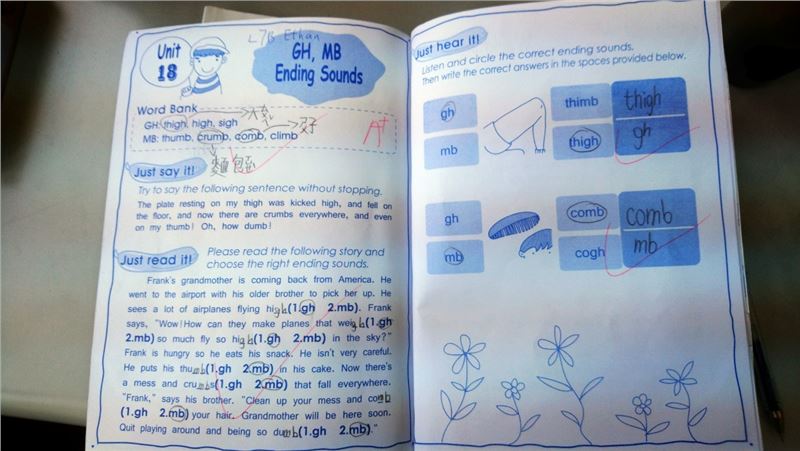 L7B Ethan
Unit
18
GH, MB
Ending Sounds
Word Bank
GH: thigh, high, sigh
MB: thumb, crumb, comb, climb
A+
Just say it!
Try to say the following sentence without stopping.
The plate resting on my thigh was kicked high, and fell on
the floor, and now there are crumbs everywhere, and even
on my thumb! Oh, how dumb!
Just read it!
Please read the following story and
choose the right ending sounds.
Frank's grandmother is coming back from America. He
went to the airport with his older brother to pick her up. He
sees a lot of airplanes flying high(1.gh 2.mb). Frank
says, "Wow! How can they make planes that weigh(1.gh
2.mb) so much fly so high(1.gh 2.mb) in the sky?"
Frank is hungry so he eats his snack. He isn't very careful.
He puts his thumb(1.gh 2.mb) in his cake. Now there's
a mess and crumbs(1.gh 2.mb) that fall everywhere.
"Frank," says his brother. "Clean up your mess and comb
(1.gh 2.mb) your hair. Grandmother will be here soon.
Quit playing around and being so dumb(1.gh 2.mb)."
Just hear it!
Listen and circle the correct ending sounds.
Then write the correct answers in the spaces provided below.
gh
thimb
thigh
mb
thigh
gh
gh
comb
comb
mb
cogh
mb